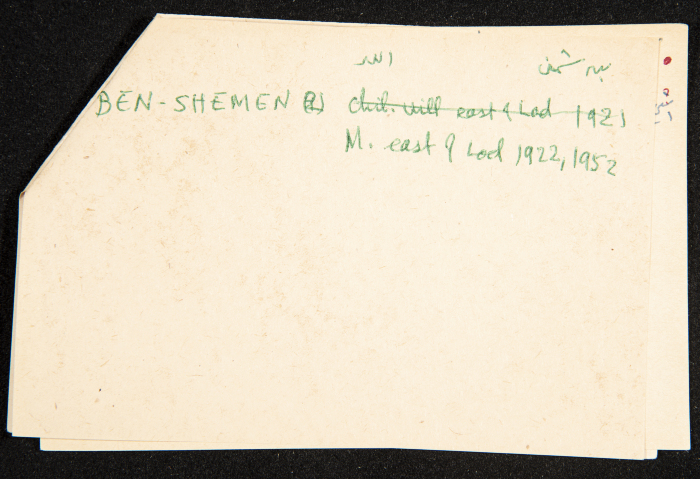 اللد
BEN-SHEMEN (2) chil. vill east of Lod 1921
M. east of Lod 1922, 1952